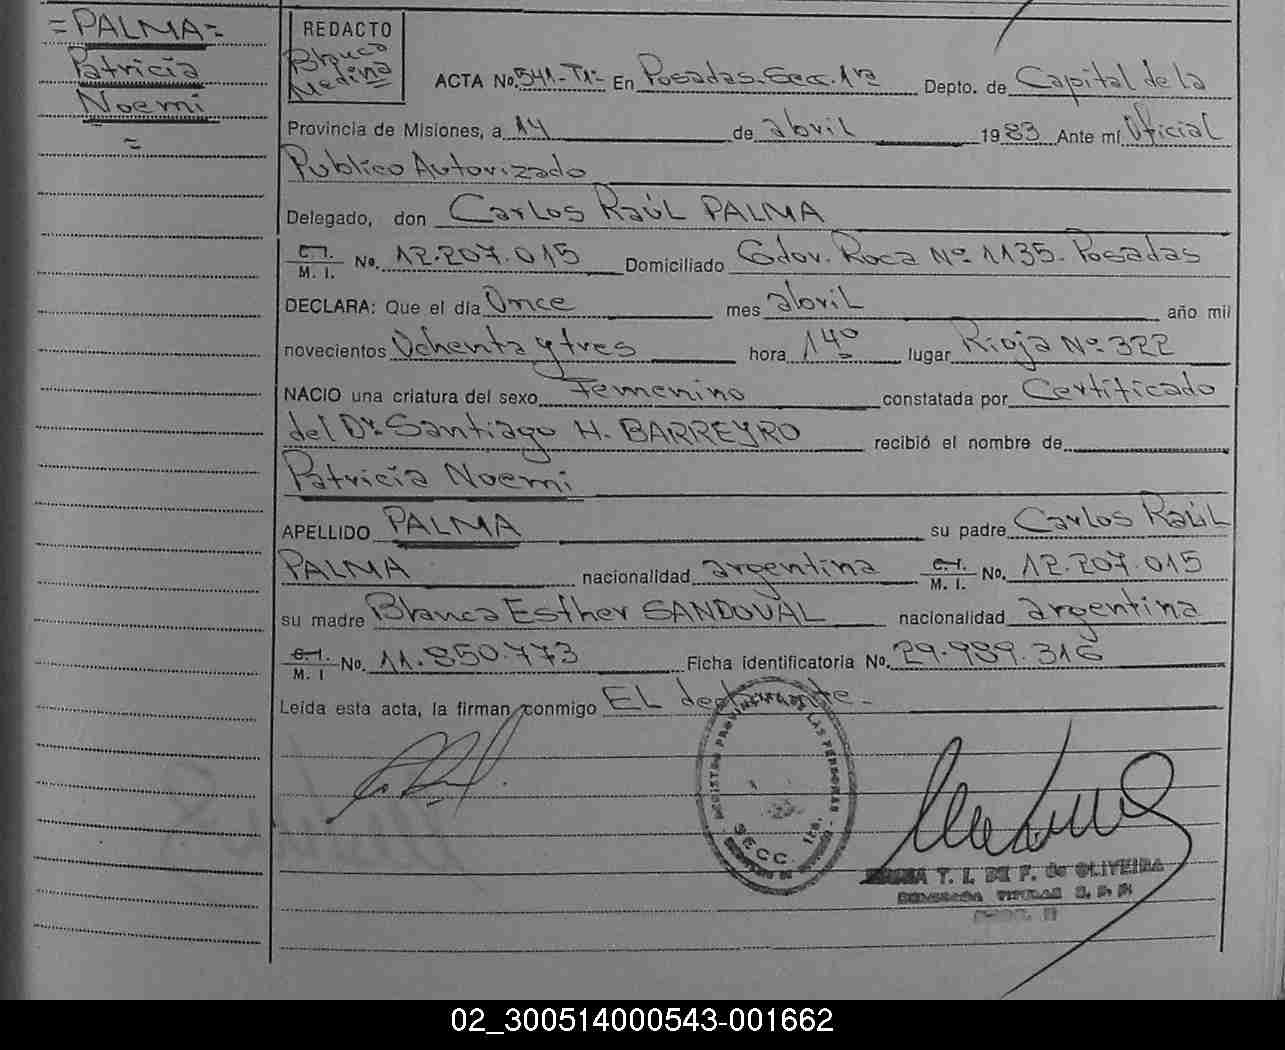 =PALMA=
Patricia
Noemi
=
REDACTO
Blanco
Medina
ACTA No. 541-T1- En Posadas-Secc. 1ra Depto. de Capital de la
Provincia de Misiones, a 14 de abril 1983 Ante mí Oficial
Publico Autorizado
Delegado, don Carlos Raúl PALMA
C. I.
M. I. No. 12.207.015 Domiciliado Gdor. Roca Nº 1135- Posadas
DECLARA: Que el día Once mes abril año mil
novecientos Ochenta y tres hora 14º lugar Rioja Nº 322
NACIO una criatura del sexo Femenino constatada por Certificado
del Dr. Santiago H. BARREYRO recibió el nombre de
Patricia Noemi
APELLIDO PALMA su padre Carlos Raúl
PALMA nacionalidad argentina C. I.
M. I. No. 12.207.015
su madre Blanca Esther SANDOVAL nacionalidad argentina
C. I.
M. I No. 11.850.773 Ficha identificatoria No. 29.989.316
Leída esta acta, la firman conmigo EL declarante-
REGISTRO PROVINCIAL DE LAS PERSONAS
SECC. 1ra.
T. I. DE F. de OLIVEIRA
TITULAR
02_300514000543-001662